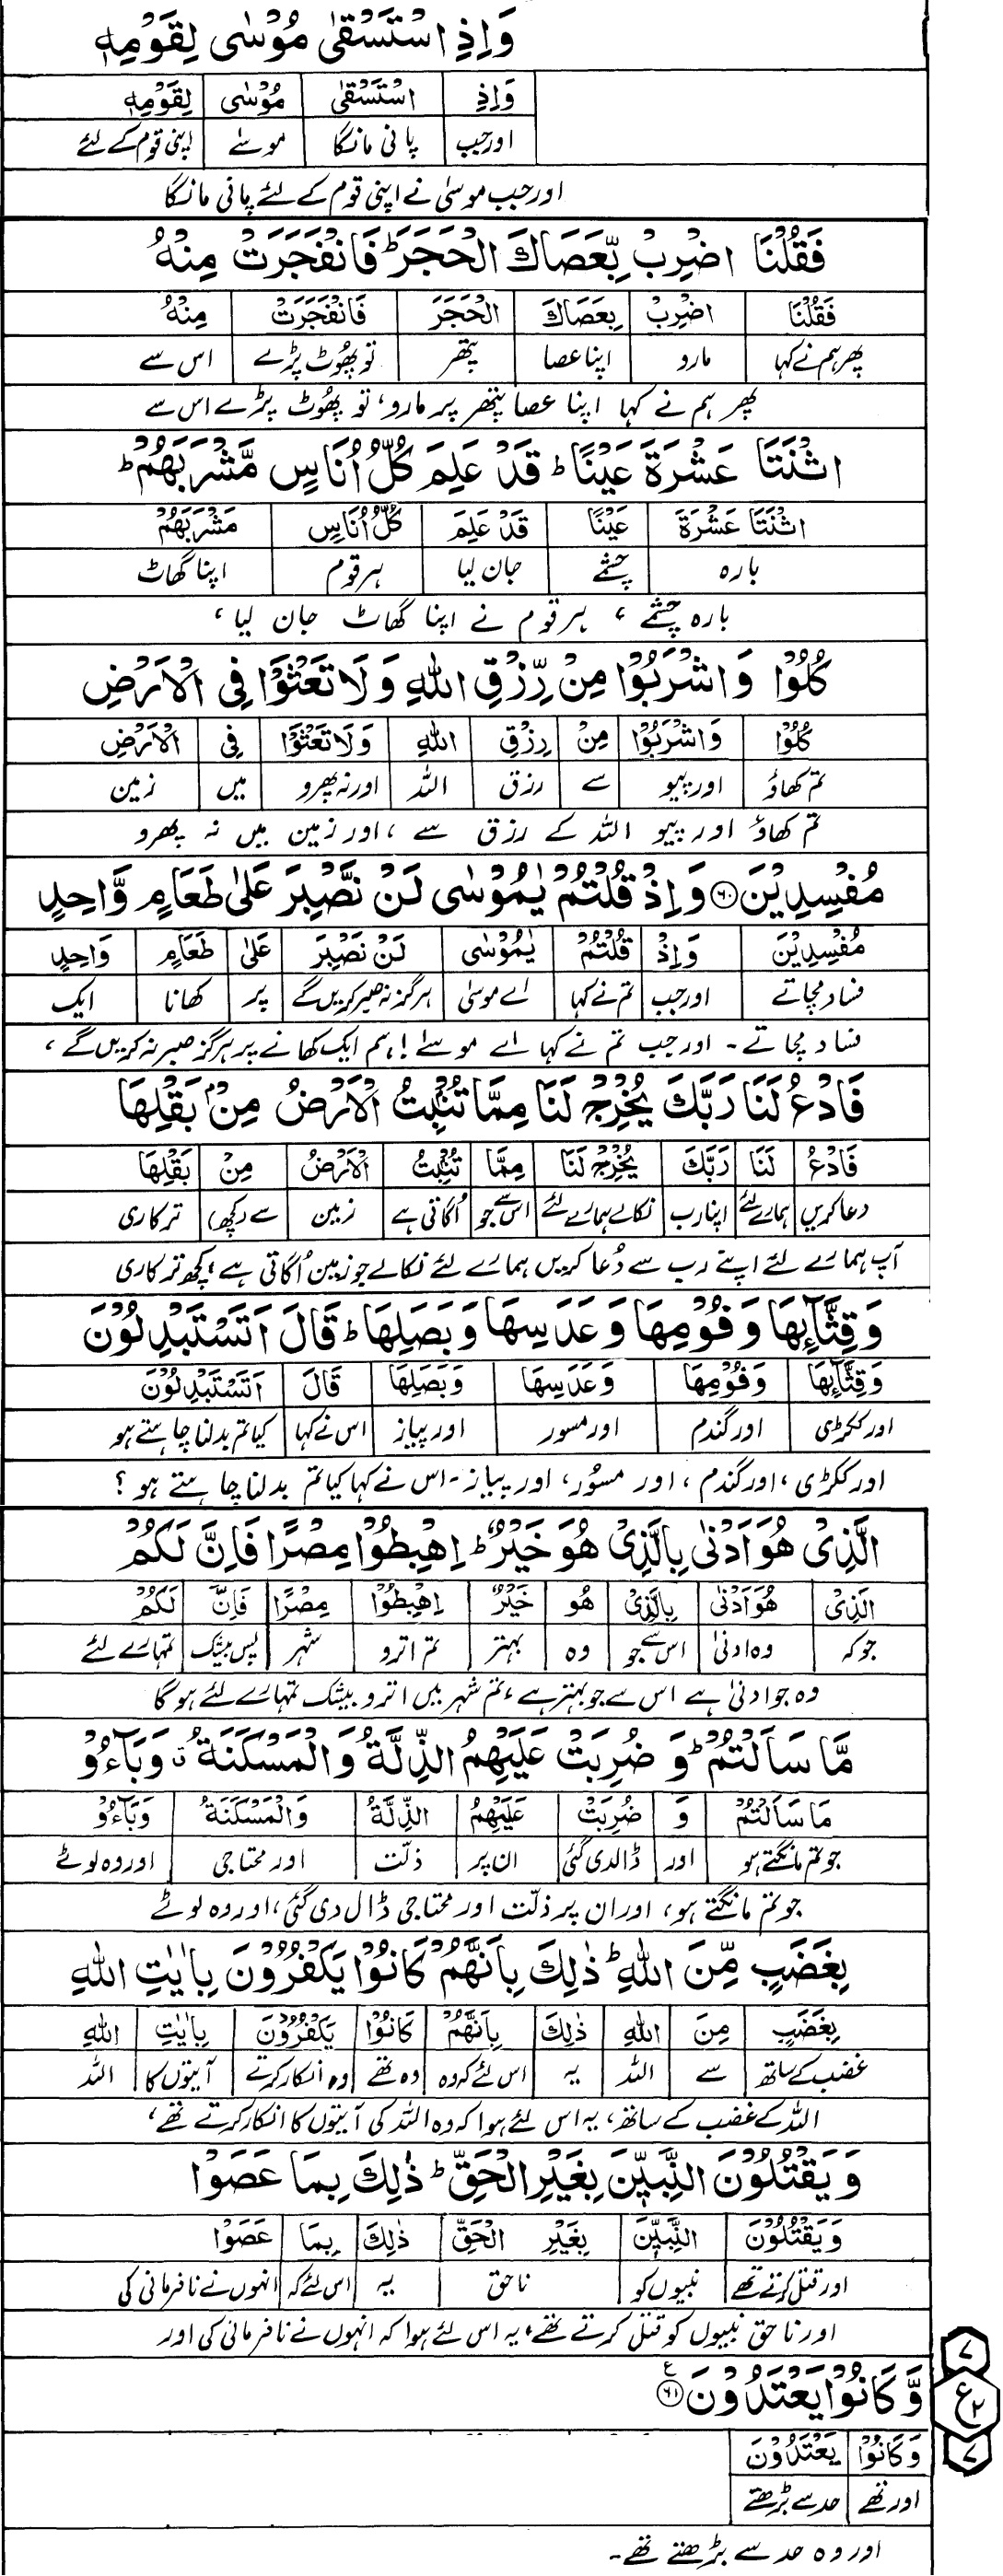 وَاِذِ اسْتَسْقٰى مُوْسٰى لِقَوْمِهٖ
وَاِذِ اسْتَسْقٰى مُوْسٰى لِقَوْمِهٖ
اور جب پانی مانگا موسےٰ اپنی قوم کے لئے
اور جب موسیٰ نے اپنی قوم کے لئے پانی مانگا
فَقُلْنَا اضْرِبْ بِّعَصَاكَ الْحَجَرَ ؕ فَانْفَجَرَتْ مِنْهُ
فَقُلْنَا اضْرِبْ بِعَصَاكَ الْحَجَرَ فَانْفَجَرَتْ مِنْهُ
پھر ہم نے کہا مارو اپنا عصا پتھر تو پھُوٹ پڑے اس سے
پھر ہم نے کہا اپنا عصا پتھر پر مارو، تو پھُوٹ پڑے اس سے
اثْنَتَا عَشْرَةَ عَيْنًا ؕ قَدْ عَلِمَ كُلُّ اُنَاسٍ مَّشْرَبَهُمْ ؕ
اثْنَتَا عَشْرَةَ عَيْنًا قَدْ عَلِمَ كُلُّ اُنَاسٍ مَشْرَبَهُمْ
بارہ چشمے جان لیا ہر قوم اپنا گھاٹ
بارہ چشمے ، ہر قوم نے اپنا گھاٹ جان لیا ،
كُلُوْا وَاشْرَبُوْا مِنْ رِّزْقِ اللهِ وَلَا تَعْثَوْا فِى الْاَرْضِ
كُلُوْا وَاشْرَبُوْا مِنْ رِزْقِ اللهِ وَلَا تَعْثَوْا فِى الْاَرْضِ
تم کھاؤ اور پیو سے رزق اللہ اور نہ پھرو میں زمین
تم کھاؤ اور پیو اللہ کے رزق سے ، اور زمین میں نہ پھرو
مُفْسِدِيْنَ ۶۰ وَاِذْ قُلْتُمْ يٰمُوْسٰى لَنْ نَّصْبِرَ عَلٰى طَعَامٍ وَّاحِدٍ
مُفْسِدِيْنَ وَاِذْ قُلْتُمْ يٰمُوْسٰى لَنْ نَصْبِرَ عَلٰى طَعَامٍ وَاحِدٍ
فساد مچاتے اور جب تم نے کہا اے موسیٰ ہرگز نہ صبر کریں گے پر کھانا ایک
فساد مچاتے ۔ اور جب تم نے کہا اے موسےٰ ! ہم ایک کھانے پر ہرگز صبر نہ کریں گے ،
فَادْعُ لَنَا رَبَّكَ يُخْرِجْ لَنَا مِمَّا تُنْۢبِتُ الْاَرْضُ مِنْۢ بَقْلِهَا
فَادْعُ لَنَا رَبَّكَ يُخْرِجْ لَنَا مِمَّا تُنْۢبِتُ الْاَرْضُ مِنْ بَقْلِهَا
دعا کریں ہمارے لئے اپنا رب نکالے ہمارے لئے اس سے جو اُگاتی ہے زمین سے (کچھ) ترکاری
آپ ہمارے لئے اپنے رب سے دُعا کریں ہمارے لئے نکالے جو زمین اُگاتی ہے ، کچھ ترکاری
وَقِثَّآئِهَا وَفُوْمِهَا وَعَدَسِهَا وَبَصَلِهَا ؕ قَالَ اَتَسْتَبْدِلُوْنَ
وَقِثَّآئِهَا وَفُوْمِهَا وَعَدَسِهَا وَبَصَلِهَا قَالَ اَتَسْتَبْدِلُوْنَ
اور ککڑی اور گندم اور مسور اور پیاز اس نے کہا کیا تم بدلنا چاہتے ہو
اور ککڑی ، اور گندم ، اور مسُور ، اور پیاز ۔ اس نے کہا کیا تم بدلنا چاہتے ہو ؟
الَّذِىْ هُوَ اَدْنٰى بِالَّذِىْ هُوَ خَيْرٌ ؕ اِهْبِطُوْا مِصْرًا فَاِنَّ لَكُمْ
الَّذِىْ هُوَ اَدْنٰى بِالَّذِىْ هُوَ خَيْرٌ اِهْبِطُوْا مِصْرًا فَاِنَّ لَكُمْ
جو کہ وہ ادنیٰ اس سے جو وہ بہتر تم اترو شہر پس بیشک تمہارے لئے
وہ جو ادنیٰ ہے اس سے جو بہتر ہے ، تم شہر میں اترو بیشک تمہارے لئے ہوگا
مَّا سَاَلْتُمْ ؕ وَ ضُرِبَتْ عَلَيْهِمُ الذِّلَّةُ وَالْمَسْكَنَةُ ۗ وَبَآءُوْ
مَا سَاَلْتُمْ وَ ضُرِبَتْ عَلَيْهِمُ الذِّلَّةُ وَالْمَسْكَنَةُ وَبَآءُوْ
جو تم مانگتے ہو اور ڈالدی گئی ان پر ذلت اور محتاجی اور وہ لوٹے
جو تم مانگتے ہو ، اور ان پر ذلّت اور محتاجی ڈال دی گئی ، اور وہ لوٹے
بِغَضَبٍ مِّنَ اللهِ ؕ ذٰلِكَ بِاَنَّهُمْ كَانُوْا يَكْفُرُوْنَ بِاٰيٰتِ اللهِ
بِغَضَبٍ مِنَ اللهِ ذٰلِكَ بِاَنَّهُمْ كَانُوْا يَكْفُرُوْنَ بِاٰيٰتِ اللهِ
غضب کے ساتھ سے اللہ یہ اس لئے کہ وہ وہ تھے وہ انکار کرتے آیتوں کا اللہ
اللہ کے غضب کے ساتھ ، یہ اس لئے ہوا کہ وہ اللہ کی آیتوں کا انکار کرتے تھے ،
وَيَقْتُلُوْنَ النَّبِيّٖنَ بِغَيْرِ الْحَقِّ ؕ ذٰلِكَ بِمَا عَصَوْا
وَيَقْتُلُوْنَ النَّبِيّٖنَ بِغَيْرِ الْحَقِّ ذٰلِكَ بِمَا عَصَوْا
اور قتل کرتے تھے نبیوں کو ناحق یہ اس لئے کہ انہوں نے نافرمانی کی
اور ناحق نبیوں کو قتل کرتے تھے ، یہ اس لئے ہوا کہ انہوں نے نافرمانی کی اور
وَّكَانُوْا يَعْتَدُوْنَ ۶۱ ع
۷
ع
۷
وَكَانُوْا يَعْتَدُوْنَ
اور تھے حد سے بڑھتے
اور وہ حد سے بڑھتے تھے ۔